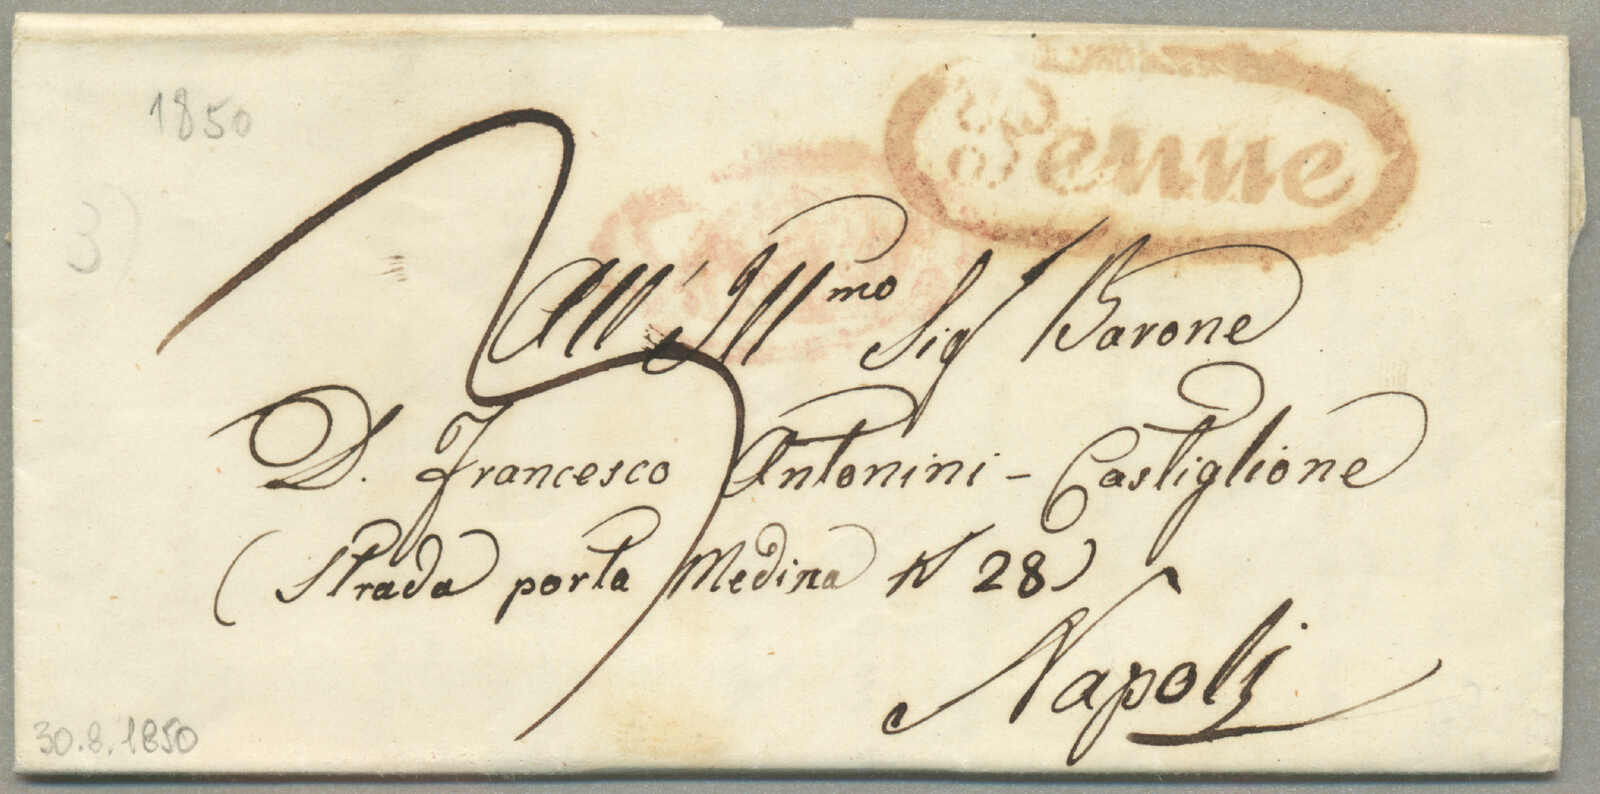 1850
Penne
3)
All' Ill mo Sig Barone
D. Francesco Antonini - Castiglione
(Strada porta Medina N 28)
Napoli
30.8.1850